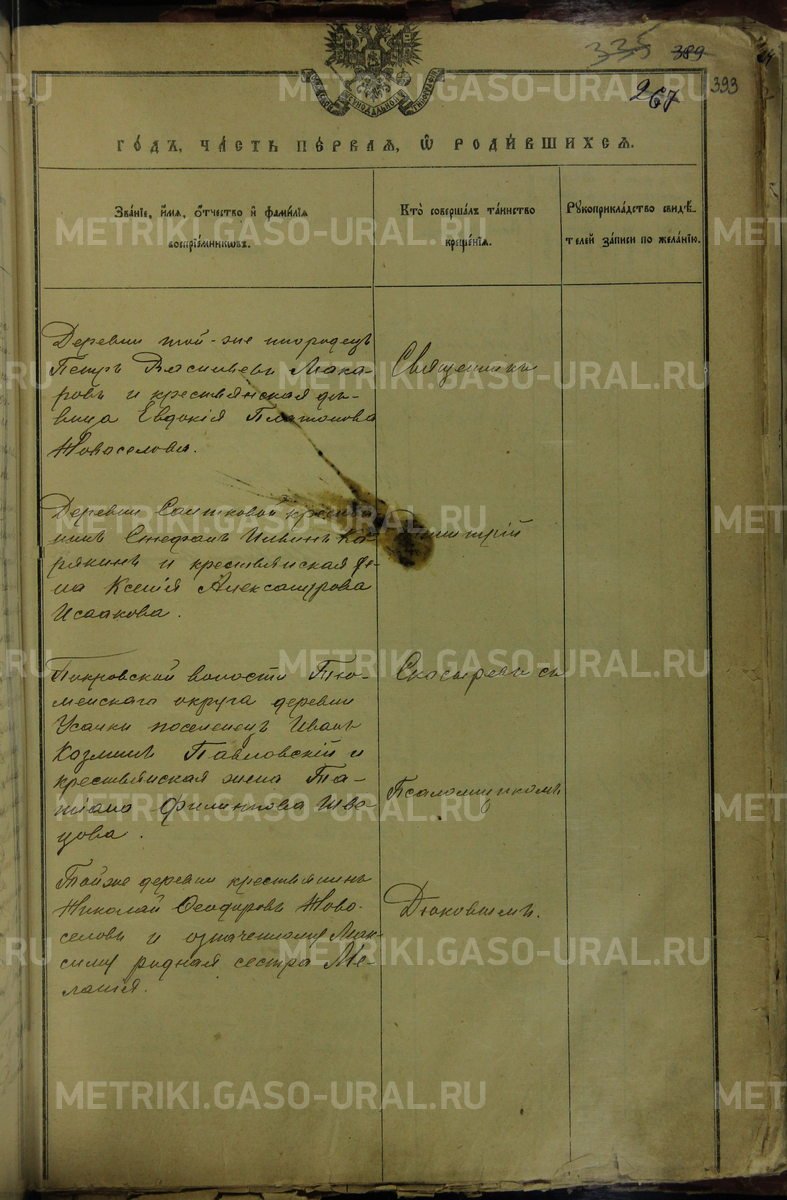 335 389
267 393
СѴНОДАЛЬНОЙ ТИПОГРАФІИ
ГО́ДЪ, ЧА́СТЬ ПЕ́РВАЯ, Ѡ҆ РОДИ́ВШИХСЯ.
Зва́нїе, и҆́мя, ѻ҆́тчество и҆ фами́лїя
воспрїе́мникѡвъ.
Кто̀ соверша́лъ та́инство
креще́нїя.
Рꙋкоприкла́дство свидѣ́-
телей за́писи по жела́нїю.
Деревни той-же инородецъ
Петръ Васильевъ Мака-
ровъ и крестьянская дѣ-
вица Евдокія Платонова
Новоселова.
Священникъ
Деревни Саитковой крестья-
нинъ Стефанъ Ильинъ Ка-
рякинъ и крестьянская же-
на Ксенія Александрова
Исаакова.
Димитрій
Покровской волости Тю-
менскаго округа деревни
Усалки поселенецъ Иванъ
Козминъ Павловскій и
крестьянская жена Та-
тіана Филиппова Шве-
цова.
Скосыревъ съ
Псаломщикомъ
Тойже деревни крестьянинъ
Николай Ѳеодоровъ Ново-
селовъ и означенному Мак-
симу родная сестра Ме-
ланія.
Дюковымъ.
METRIKI.GASO-URAL.RU